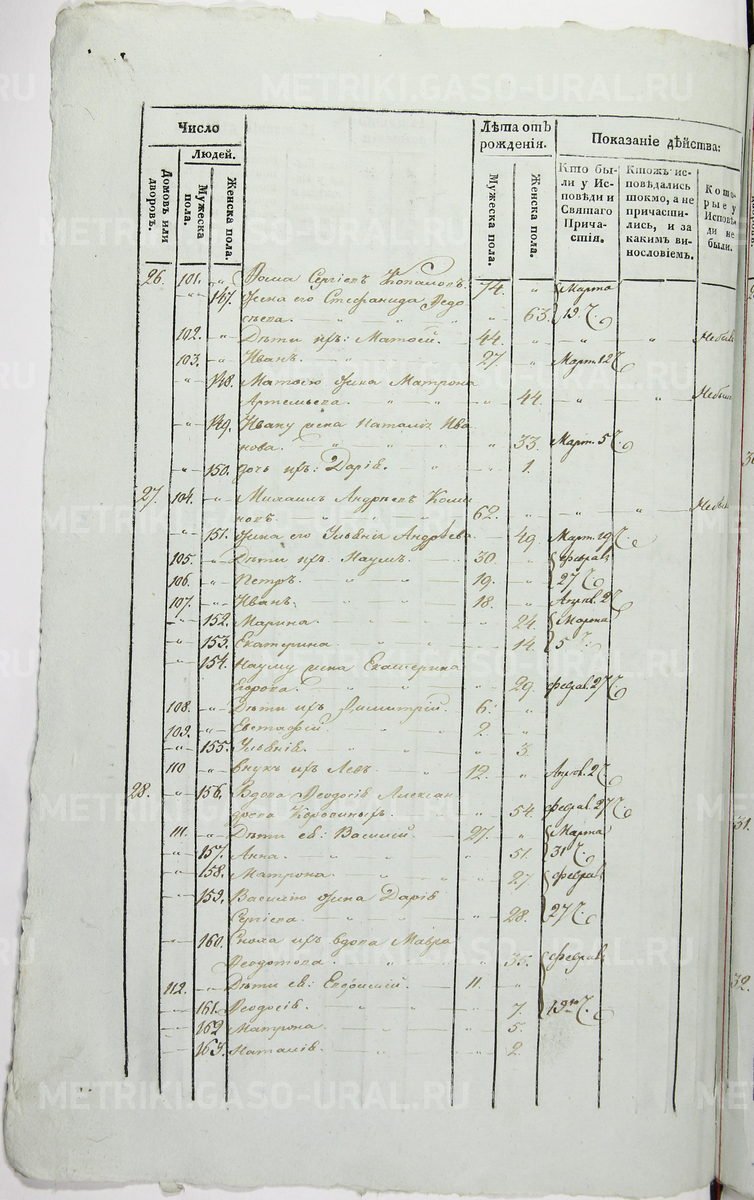 METRIKI.GASO-URAL.RU
Число
Людей.
Домовъ или дворовъ.
Мужеска пола.
Женска пола.
Лѣта отъ рожденія.
Мужеска пола.
Женска пола.
Показаніе дѣйства:
Кто были у Исповѣди и Святаго Причастія.
Ктожъ исповѣдались токмо, а не причастились, и за какимъ винословіемъ.
Которые у Исповѣди не были.
26. 101. „ Фома Сергіевъ 74. „ Марта
„ 147. Жена его Стефанида Ѳедо
сѣева. „ 63. 19.
102. „ Дѣти ихъ: Матѳей. 44. „ „ „ Небылъ
103. „ Иванъ. 27. „ Март. 12
„ 148. Матѳею жена Матрона
Артемьева. „ 44. „ „ Небыла
„ 149. Ивану жена Наталія Ива
нова. „ 33. Март. 5
„ 150. дочь ихъ: Дарія. „ 1.
27. 104. „ Михаилъ Андреевъ
62. „ „ „ Небылъ
„ 151. жена его Ульянія Андреева „ 49. Март. 19
105. „ Дѣти ихъ: Наумъ. 30. „ Феврал
106. „ Петръ. 19. „ 27
107. „ Иванъ. 18. „ Апрѣл. 2
„ 152. Марина. „ 24. Марта
„ 153. Екатерина „ 14. 5
„ 154. Науму жена Екатерина
Егорова. „ 29. Феврал. 27
108. „ Дѣти ихъ Димитрій. 6. „
109. „ Евстафій. 2. „
„ 155. Ульянія. „ 3.
110 „ внукъ ихъ Левъ. 12. „ Апрѣл. 2
28. „ 156. Вдова Ѳеодосія Алексан
дрова „ 54. Феврал. 27
111. „ Дѣти ея: Василій. 27. „ Марта
„ 157. Анна. „ 51. 31
„ 158. Матрона. „ 27 Феврал
„ 159. Василію жена Дарія
Сергіева. „ 28. 27
„ 160. Сноха ихъ вдова Мавра
Ѳеодотова. „ 35. Феврал
112. „ Дѣти ея: 11. „
„ 161. Ѳеодосія. „ 7. 19го
„ 162 Матрона. „ 5.
„ 163. Наталія. „ 2.
31.
32.